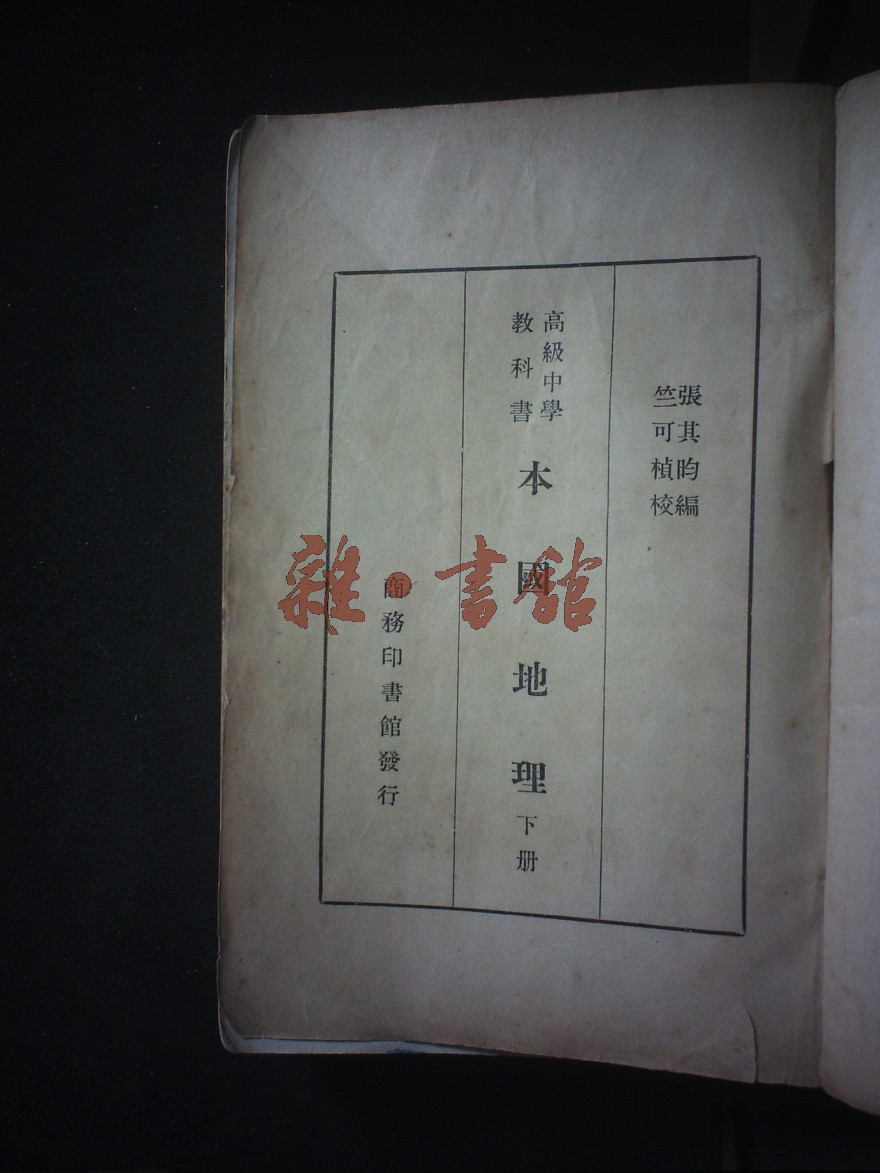 張其昀編
竺可楨校
高級中學
教科書
本國地理下册
商務印書館發行
雜·書館